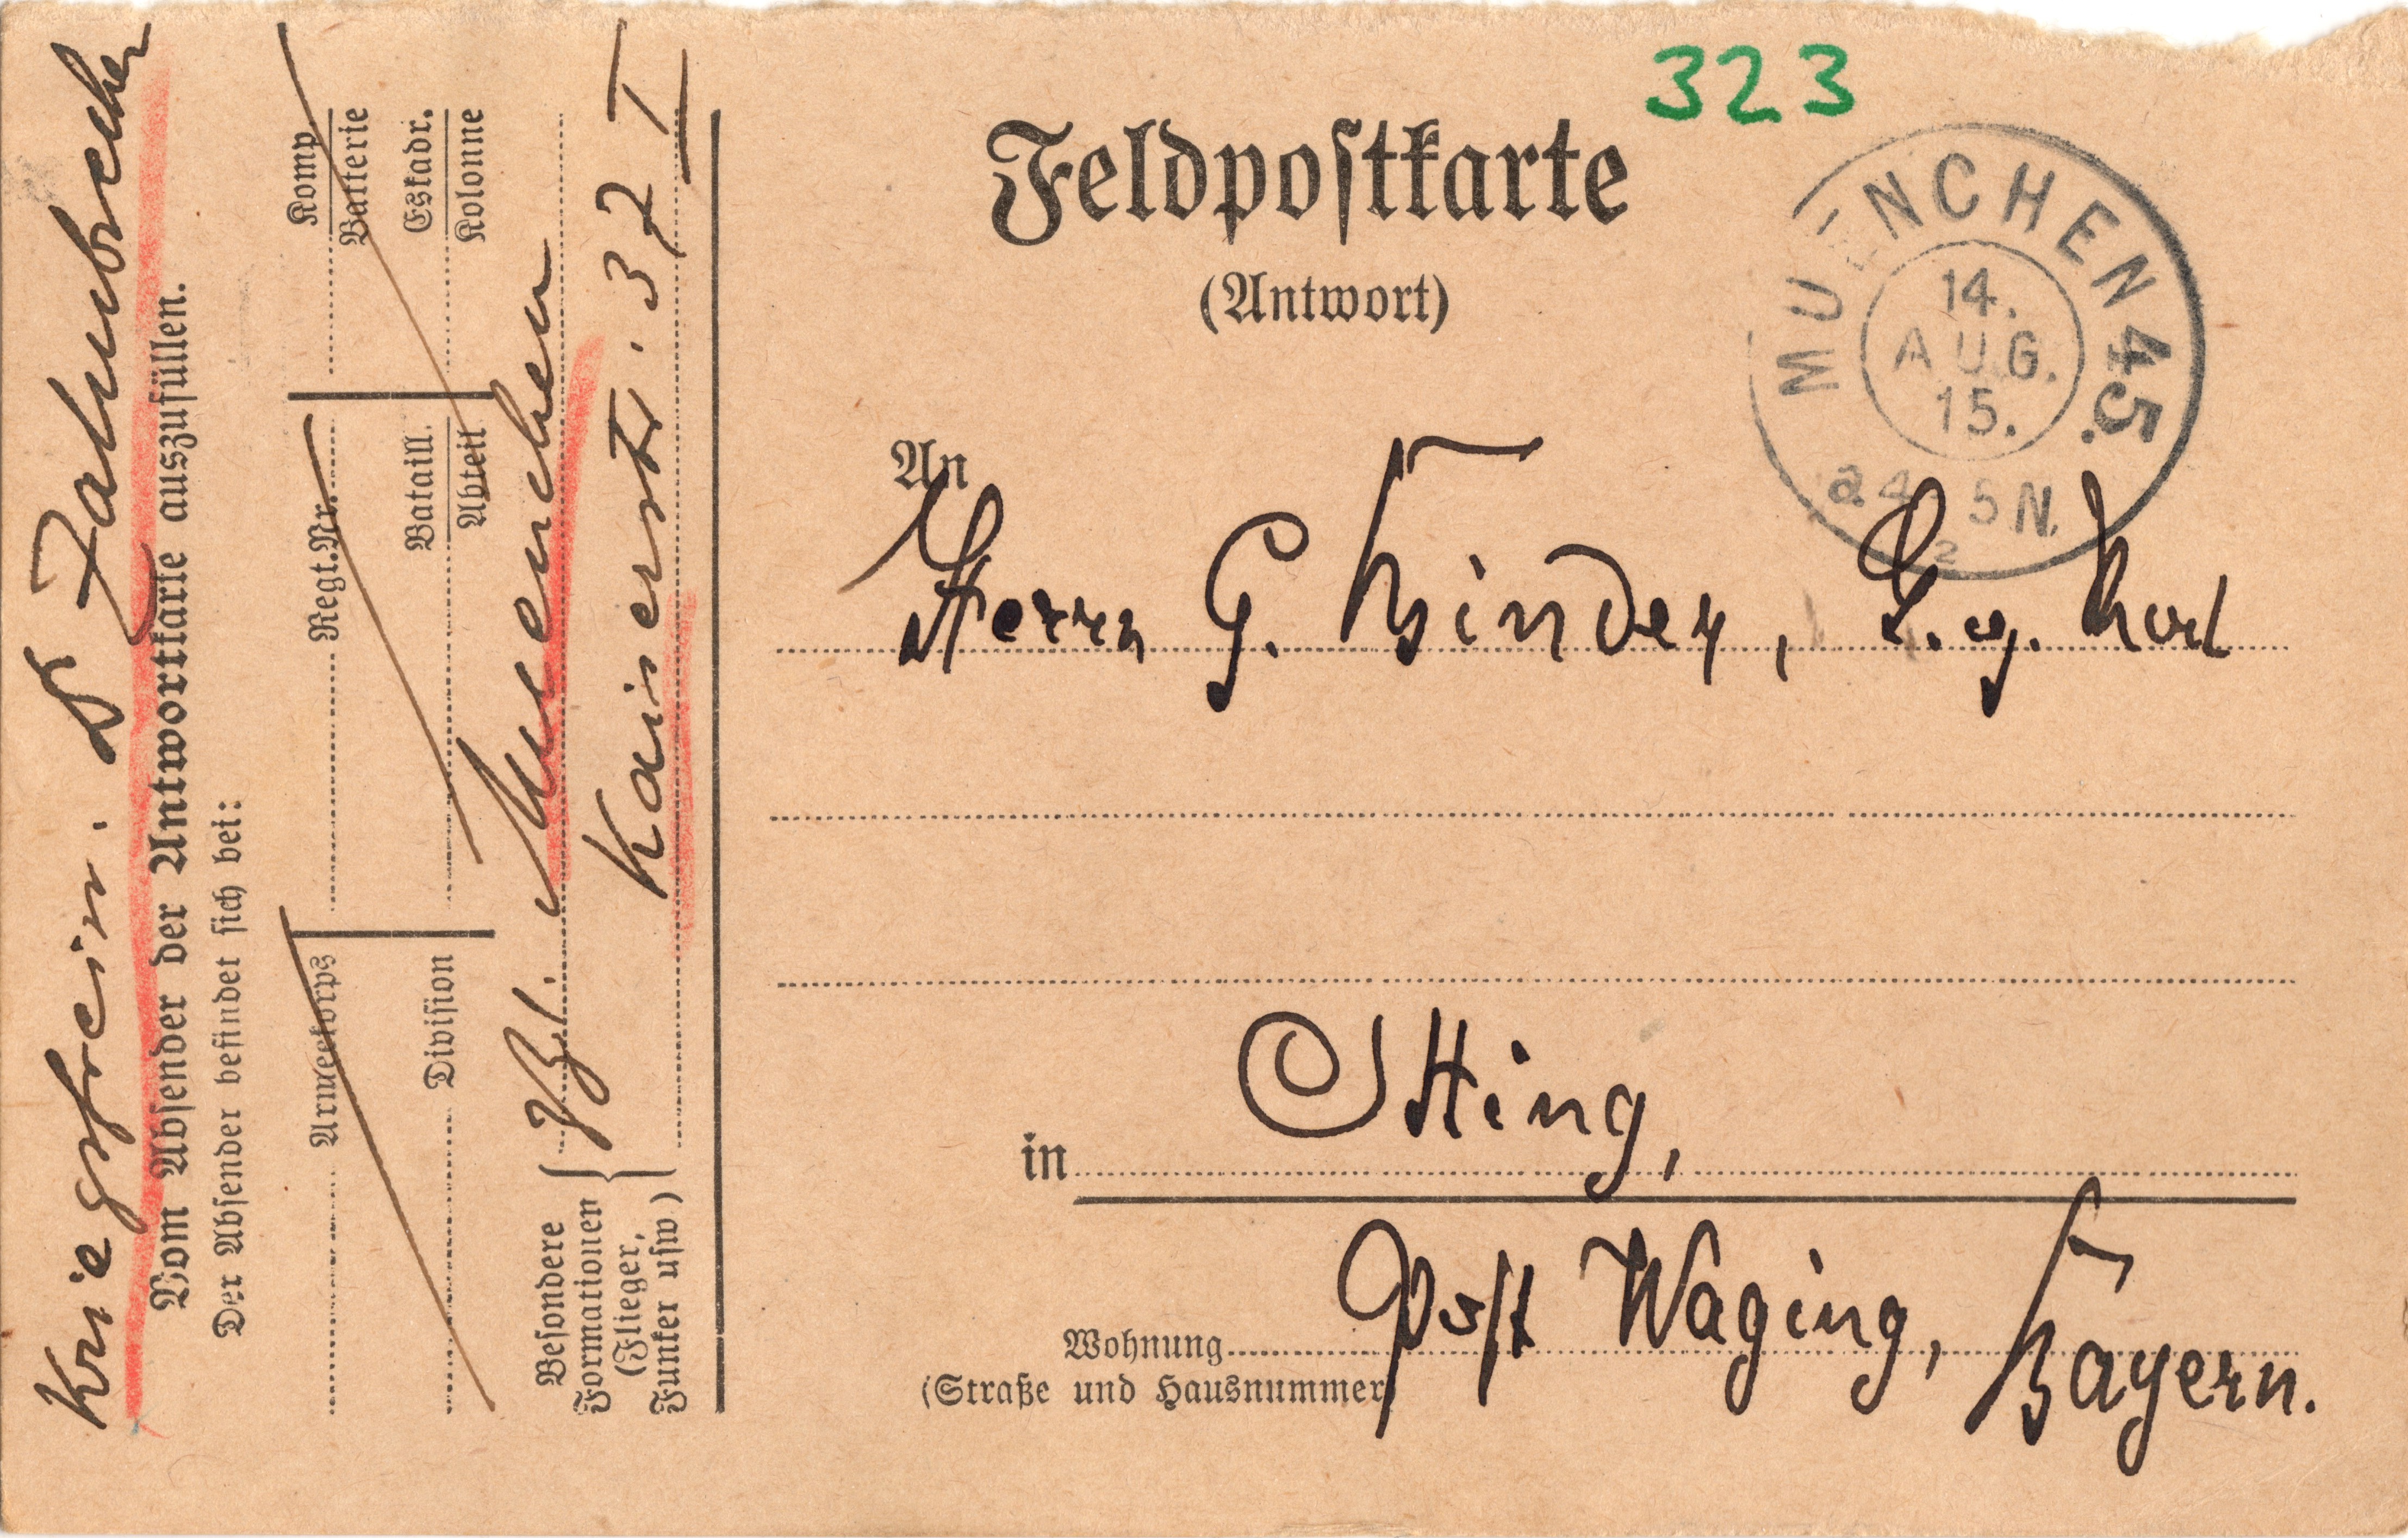 323
Feldpostkarte
(Antwort)
MUENCHEN 45.
14.
AUG.
15.
a. 4 - 5 N.
2
An
Herrn G. Binder,
in Otting,
Wohnung Post Waging, Bayern.
(Straße und Hausnummer)
Kriegsfreiw.
Vom Absender der Antwortkarte auszufüllen.
Der Absender befindet sich bei:
Armeekorps Regt.Nr. Komp.
Batterie
Division Bataill. Eskadr.
Abteil Kolonne
Besondere
Formationen
(Flieger,
Funker usw.)
Muenchen
Kaiserstr. 37 I